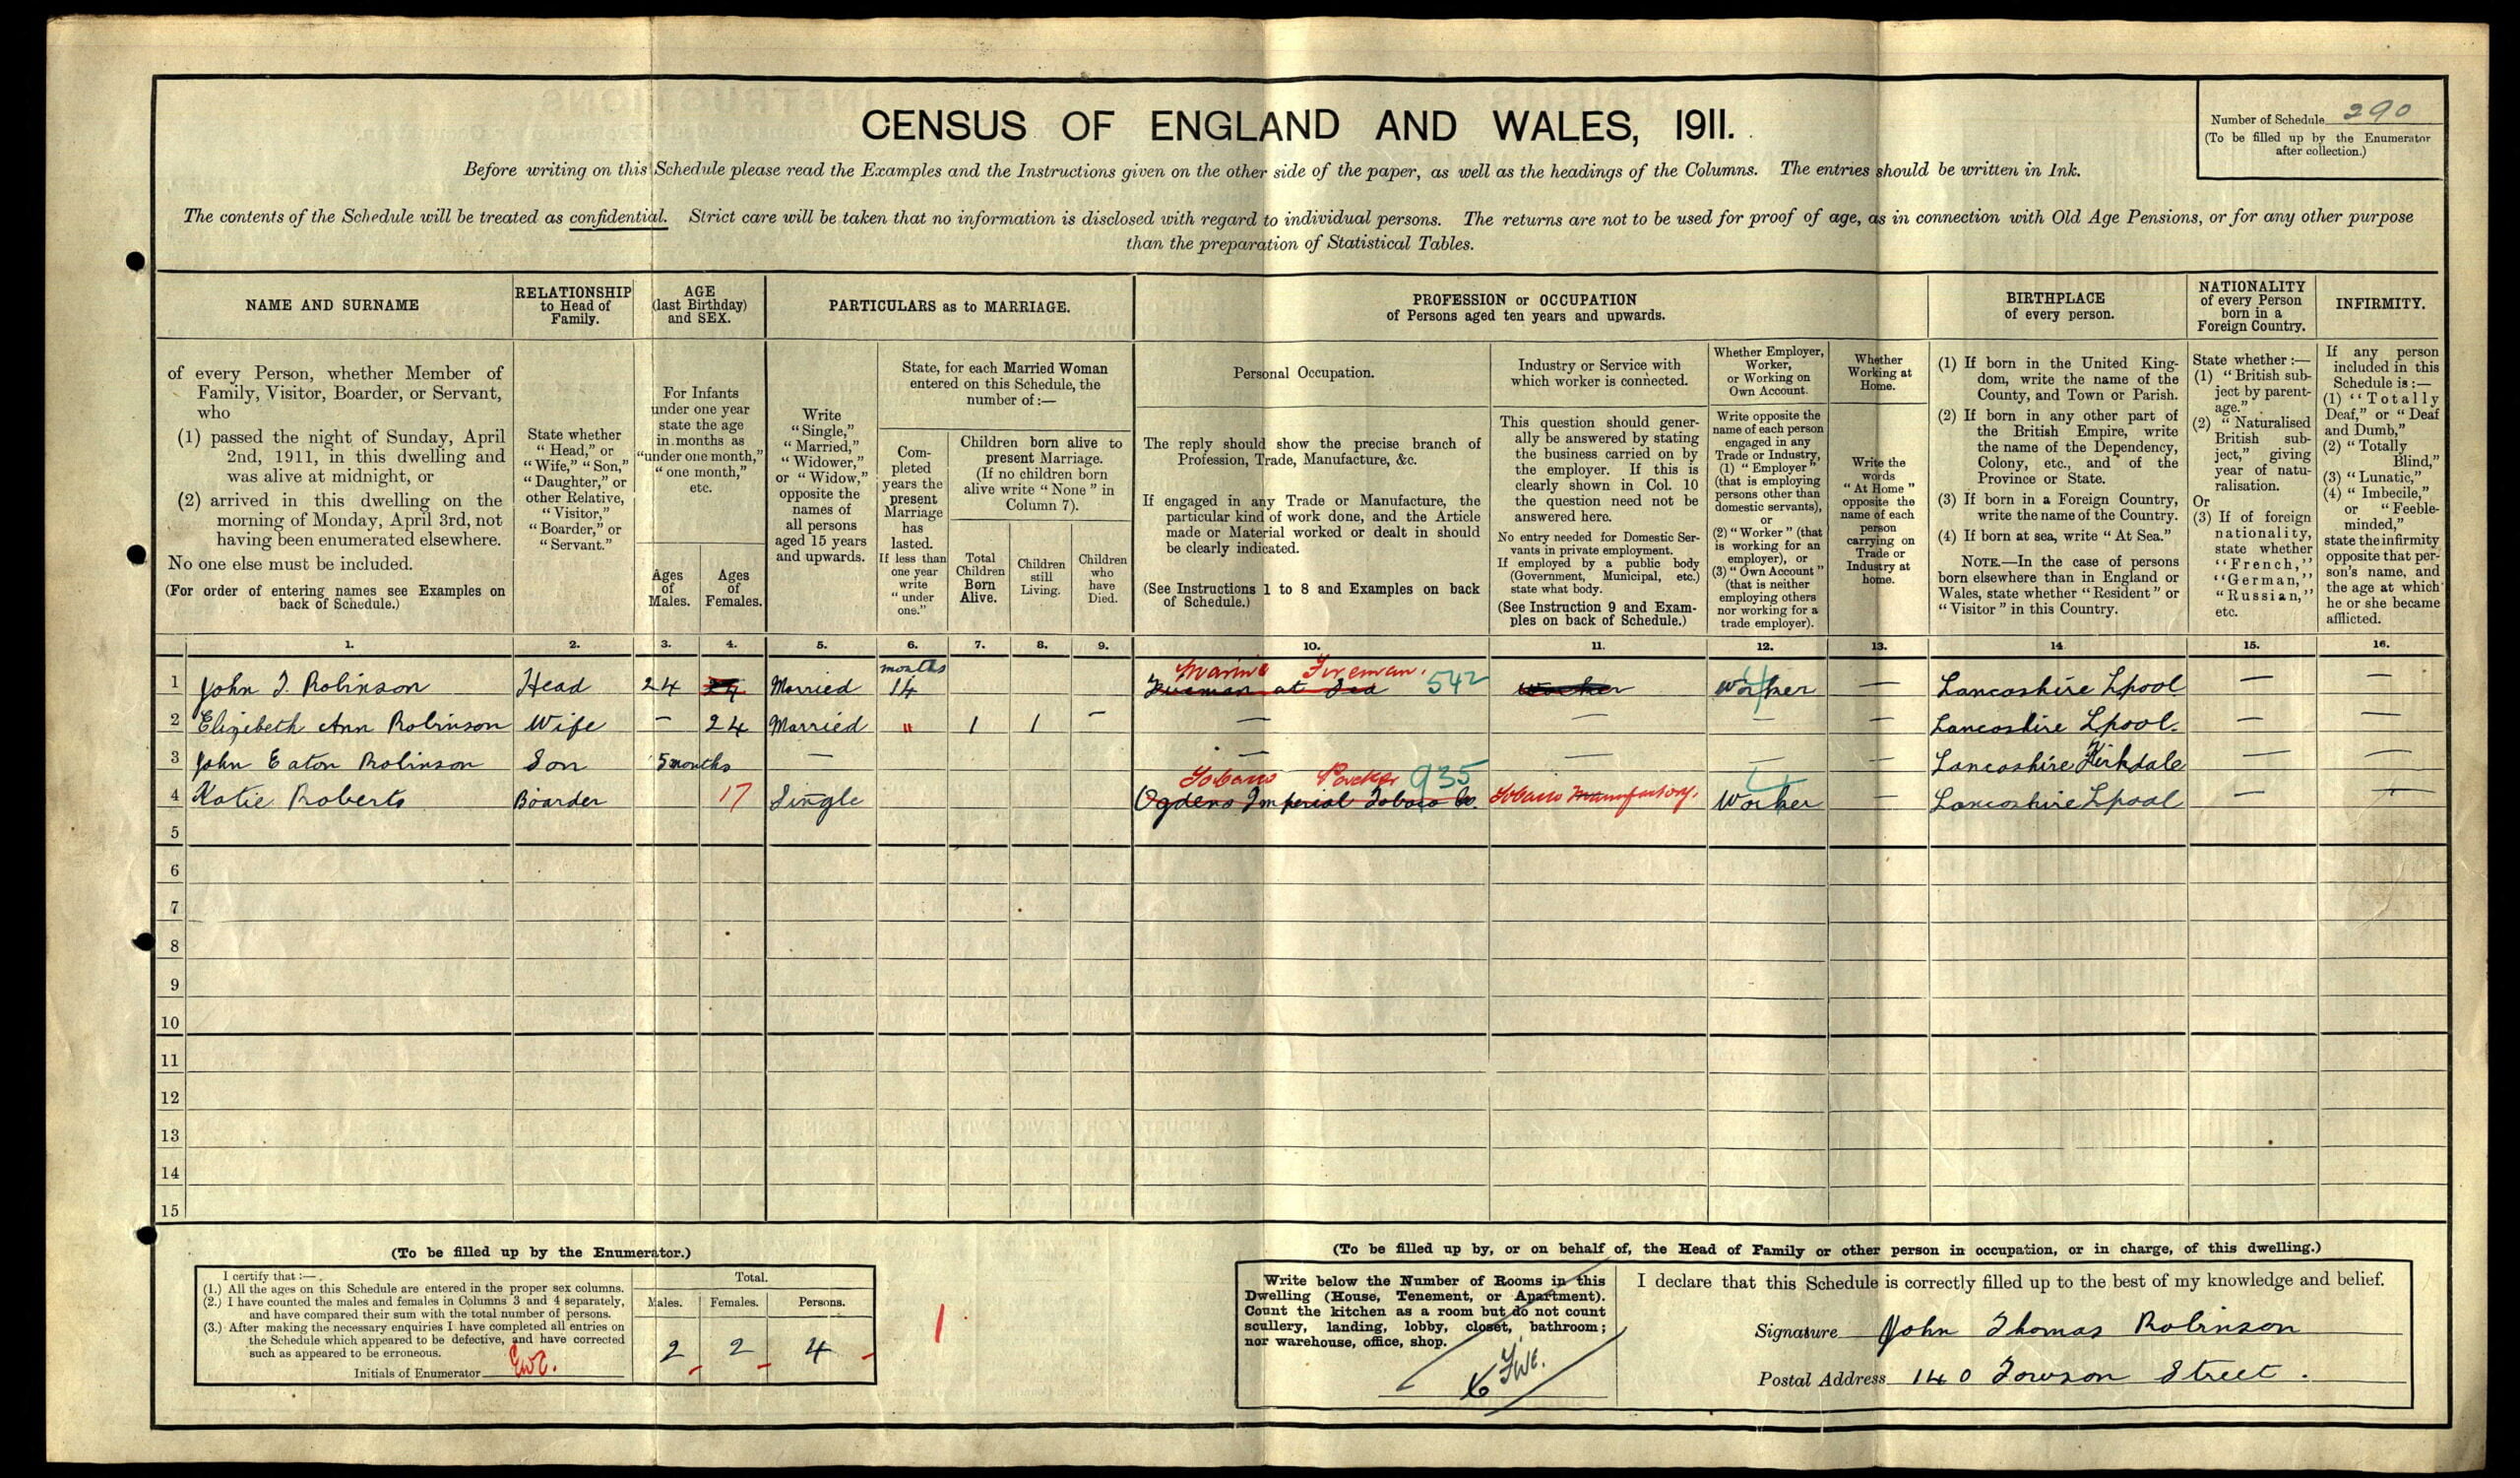 CENSUS OF ENGLAND AND WALES, 1911.
Number of Schedule 290
(To be filled up by the Enumerator
after collection.)
Before writing on this Schedule please read the Examples and the Instructions given on the other side of the paper, as well as the headings of the Columns. The entries should be written in Ink.
The contents of the Schedule will be treated as confidential. Strict care will be taken that no information is disclosed with regard to individual persons. The returns are not to be used for proof of age, as in connection with Old Age Pensions, or for any other purpose
than the preparation of Statistical Tables.
NAME AND SURNAME
of every Person, whether Member of
Family, Visitor, Boarder, or Servant,
who
(1) passed the night of Sunday, April
2nd, 1911, in this dwelling and
was alive at midnight, or
(2) arrived in this dwelling on the
morning of Monday, April 3rd, not
having been enumerated elsewhere.
No one else must be included.
(For order of entering names see Examples on
back of Schedule.)
RELATIONSHIP
to Head of
Family.
State whether
"Head," or
"Wife," "Son,"
"Daughter," or
other Relative,
"Visitor,"
"Boarder," or
"Servant."
AGE
(last Birthday)
and SEX.
For Infants
under one year
state the age
in months as
"under one month,"
"one month,"
etc.
Ages
of
Males.
Ages
of
Females.
PARTICULARS as to MARRIAGE.
Write
"Single,"
"Married,"
"Widower,"
or "Widow,"
opposite the
names of
all persons
aged 15 years
and upwards.
State, for each Married Woman
entered on this Schedule, the
number of:—
Com-
pleted
years the
present
Marriage
has
lasted.
If less than
one year
write
"under
one."
Children born alive to
present Marriage.
(If no children born
alive write "None" in
Column 7).
Total
Children
Born
Alive.
Children
still
Living.
Children
who
have
Died.
PROFESSION or OCCUPATION
of Persons aged ten years and upwards.
Personal Occupation.
The reply should show the precise branch of
Profession, Trade, Manufacture, &c.
If engaged in any Trade or Manufacture, the
particular kind of work done, and the Article
made or Material worked or dealt in should
be clearly indicated.
(See Instructions 1 to 8 and Examples on back
of Schedule.)
Industry or Service with
which worker is connected.
This question should gener-
ally be answered by stating
the business carried on by
the employer. If this is
clearly shown in Col. 10
the question need not be
answered here.
No entry needed for Domestic Ser-
vants in private employment.
If employed by a public body
(Government, Municipal, etc.)
state what body.
(See Instruction 9 and Exam-
ples on back of Schedule.)
Whether Employer,
Worker,
or Working on
Own Account.
Write opposite the
name of each person
engaged in any
Trade or Industry,
(1) "Employer"
(that is employing
persons other than
domestic servants),
or
(2) "Worker" (that
is working for an
employer), or
(3) "Own Account"
(that is neither
employing others
nor working for a
trade employer).
Whether
Working at
Home.
Write the
words
"At Home"
opposite the
name of each
person
carrying on
Trade or
Industry at
home.
BIRTHPLACE
of every person.
(1) If born in the United King-
dom, write the name of the
County, and Town or Parish.
(2) If born in any other part of
the British Empire, write
the name of the Dependency,
Colony, etc., and of the
Province or State.
(3) If born in a Foreign Country,
write the name of the Country.
(4) If born at sea, write "At Sea."
NOTE.—In the case of persons
born elsewhere than in England or
Wales, state whether "Resident" or
"Visitor" in this Country.
NATIONALITY
of every Person
born in a
Foreign Country.
State whether:—
(1) "British sub-
ject by parent-
age."
(2) "Naturalised
British sub-
ject," giving
year of natu-
ralisation.
Or
(3) If of foreign
nationality,
state whether
"French,"
"German,"
"Russian,"
etc.
INFIRMITY.
If any person
included in this
Schedule is:—
(1) "Totally
Deaf," or "Deaf
and Dumb,"
(2) "Totally
Blind,"
(3) "Lunatic,"
(4) "Imbecile,"
or "Feeble-
minded,"
state the infirmity
opposite that per-
son's name, and
the age at which
he or she became
afflicted.
1. 2. 3. 4. 5. 6. 7. 8. 9. 10. 11. 12. 13. 14 15. 16.
months Marine Fireman.
1 John T. Robinson Head 24 24 Married 14 Fireman at Sea 542 Worker Worker — Lancashire Lpool — —
2 Elizebeth Ann Robinson Wife — 24 Married " 1 1 — — — — — Lancashire Lpool. — —
3 John Eaton Robinson Son 5 months — — — — — Lancashire Kirkdale — —
Tobacco Packer 935
4 Katie Roberts Boarder 17 Single Ogdens Imperial Tobaco Co. Tobacco Manufactory. Worker — Lancashire Lpool — —
5
6
7
8
9
10
11
12
13
14
15
(To be filled up by the Enumerator.)
I certify that:—
(1.) All the ages on this Schedule are entered in the proper sex columns.
(2.) I have counted the males and females in Columns 3 and 4 separately,
and have compared their sum with the total number of persons.
(3.) After making the necessary enquiries I have completed all entries on
the Schedule which appeared to be defective, and have corrected
such as appeared to be erroneous.
Initials of Enumerator
Total.
Males. Females. Persons.
2 2 4
(To be filled up by, or on behalf of, the Head of Family or other person in occupation, or in charge, of this dwelling.)
Write below the Number of Rooms in this
Dwelling (House, Tenement, or Apartment).
Count the kitchen as a room but do not count
scullery, landing, lobby, closet, bathroom;
nor warehouse, office, shop.
6
I declare that this Schedule is correctly filled up to the best of my knowledge and belief.
Signature John Thomas Robinson
Postal Address 140 Towson Street.